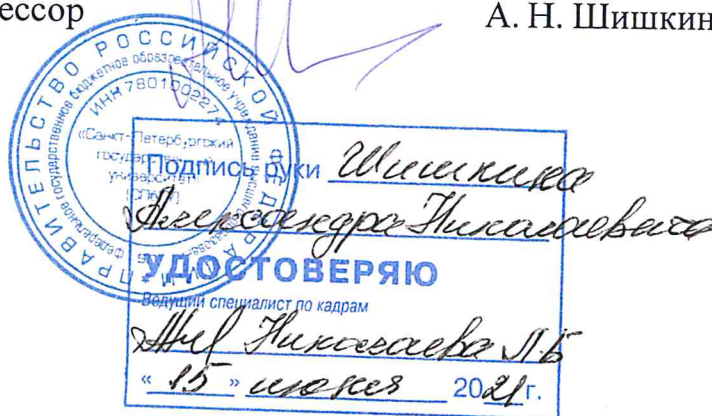 ессор
А. Н. Шишкин
ПРАВИТЕЛЬСТВО РОССИЙСКОЙ ФЕДЕРАЦИИ
Федеральное государственное бюджетное образовательное учреждение высшего
ИНН 7801002274
«Санкт-Петербургский
государственный
университет»
(СПбГУ)
Подпись руки Шишкина
Александра Николаевича
УДОСТОВЕРЯЮ
Ведущий специалист по кадрам
Николаева Л.Б
«15» июня 2021г.